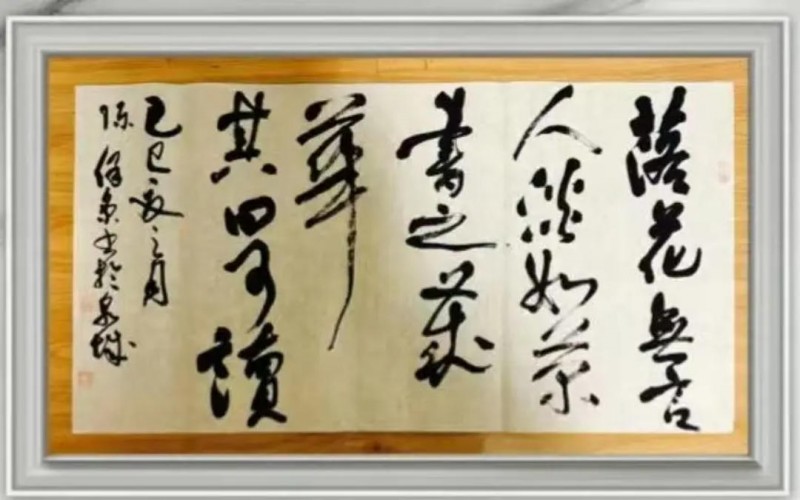 落花無言
人淡如菊
書之歲
華
其曰可讀
乙巳夏之月
陳書於泉城